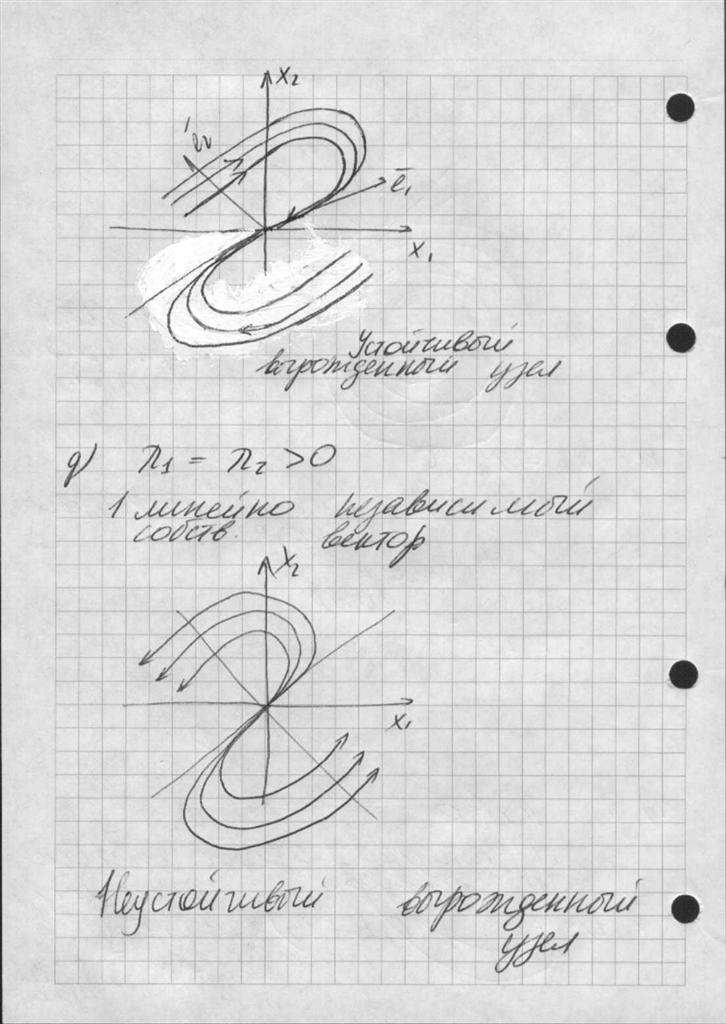 x₂
e₂
e̅₁
x₁
Устойчивый
вырожденный узел
д) λ₁ = λ₂ > 0
1 линейно независимый
собств. вектор
x₂
x₁
Неустойчивый вырожденный
узел